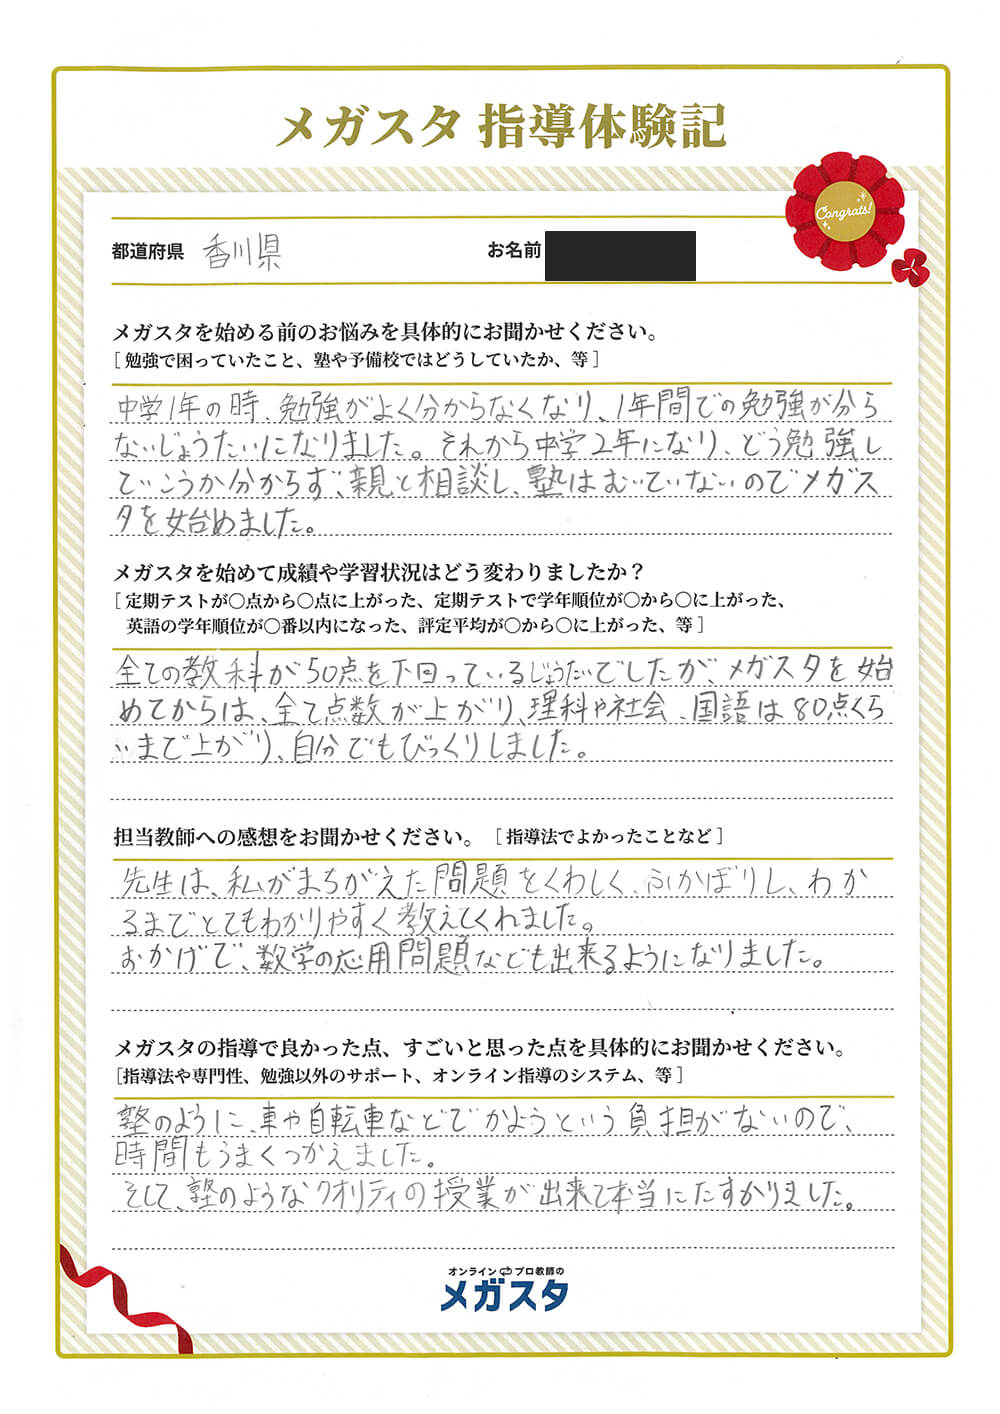 メガスタ 指導体験記
Congrats!
都道府県 香川県 お名前
メガスタを始める前のお悩みを具体的にお聞かせください。
[ 勉強で困っていたこと、塾や予備校ではどうしていたか、等 ]
中学1年の時、勉強がよく分からなくなり、1年間での勉強が分ら
ないじょうたいになりました。それから中学2年になり、どう勉強し
ていこうか分からず、親と相談し、塾はむいていないのでメガス
タを始めました。
メガスタを始めて成績や学習状況はどう変わりましたか？
[ 定期テストが〇点から〇点に上がった、定期テストで学年順位が〇から〇に上がった、
英語の学年順位が〇番以内になった、評定平均が〇から〇に上がった、等 ]
全ての教科が50点を下回っているじょうたいでしたが、メガスタを始
めてからは、全て点数が上がり、理科や社会、国語は80点くら
いまで上がり、自分でもびっくりしました。
担当教師への感想をお聞かせください。 [ 指導法でよかったことなど ]
先生は、私がまちがえた問題をくわしく、ふかぼりし、わか
るまでとてもわかりやすく教えてくれました。
おかげで、数学の応用問題なども出来るようになりました。
メガスタの指導で良かった点、すごいと思った点を具体的にお聞かせください。
[指導法や専門性、勉強以外のサポート、オンライン指導のシステム、等 ]
塾のように、車や自転車などでかようという負担がないので、
時間もうまくつかえました。
そして、塾のようなクオリティの授業が出来て本当にたすかりました。
オンラインプロ教師の
メガスタ